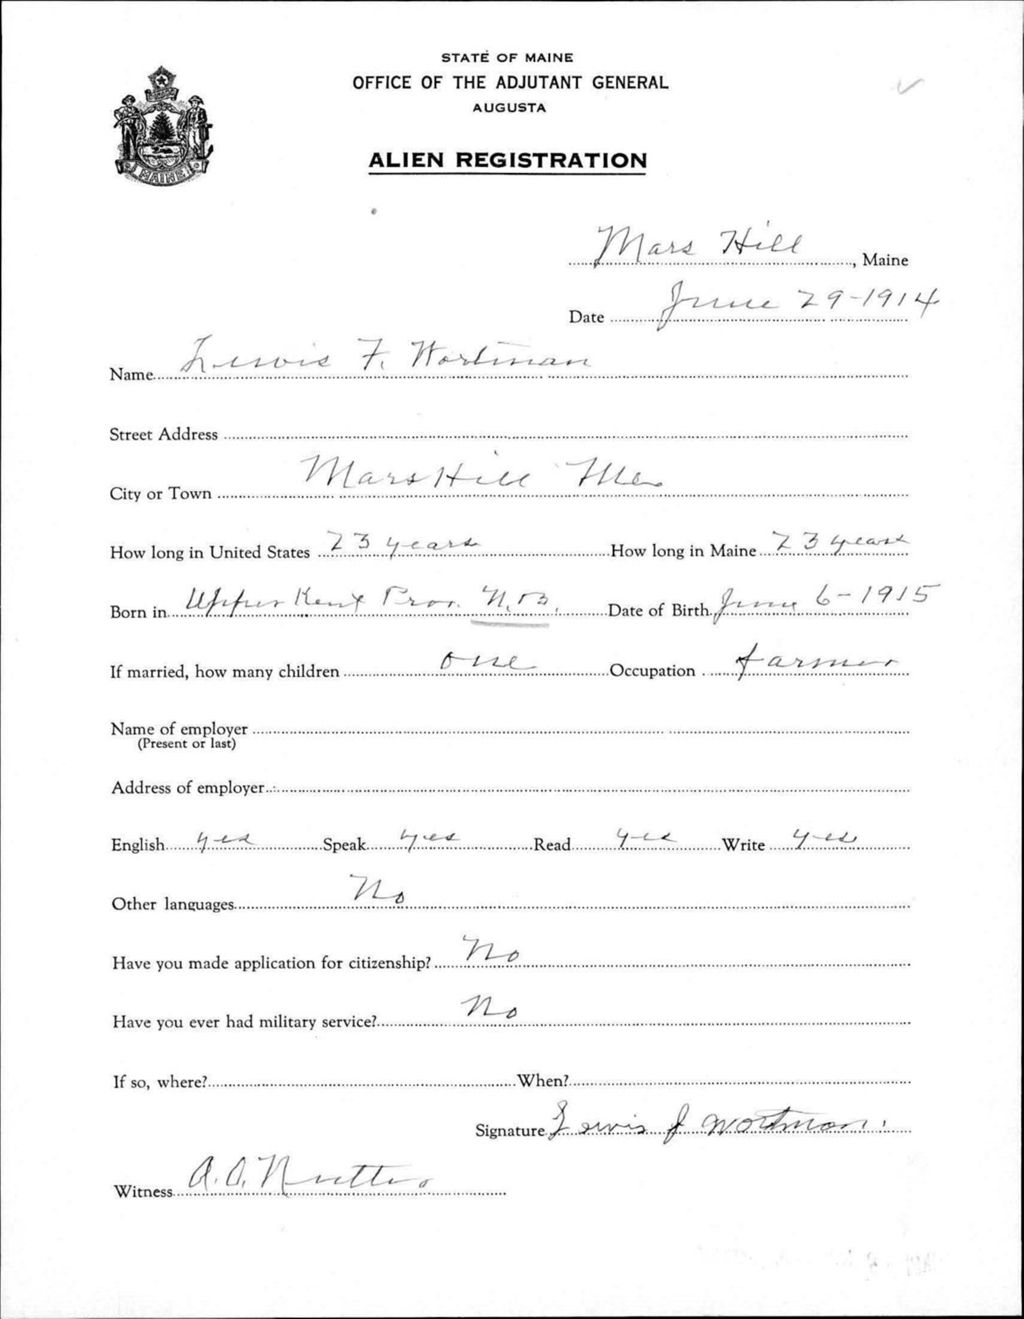 STATE OF MAINE
OFFICE OF THE ADJUTANT GENERAL
AUGUSTA
ALIEN REGISTRATION
MAINE
Mars Hill, Maine
Date June 29-1914
Name Lewis F. Wortman
Street Address
City or Town Mars Hill Me.
How long in United States 23 years How long in Maine 23 years
Born in Upper Kent Prov. N.B. Date of Birth June 6-1915
If married, how many children one Occupation farmer
Name of employer
(Present or last)
Address of employer
English yes Speak yes Read yes Write yes
Other languages No
Have you made application for citizenship? No
Have you ever had military service? No
If so, where? When?
Signature Lewis J Wortman.
Witness A. O. Nutter